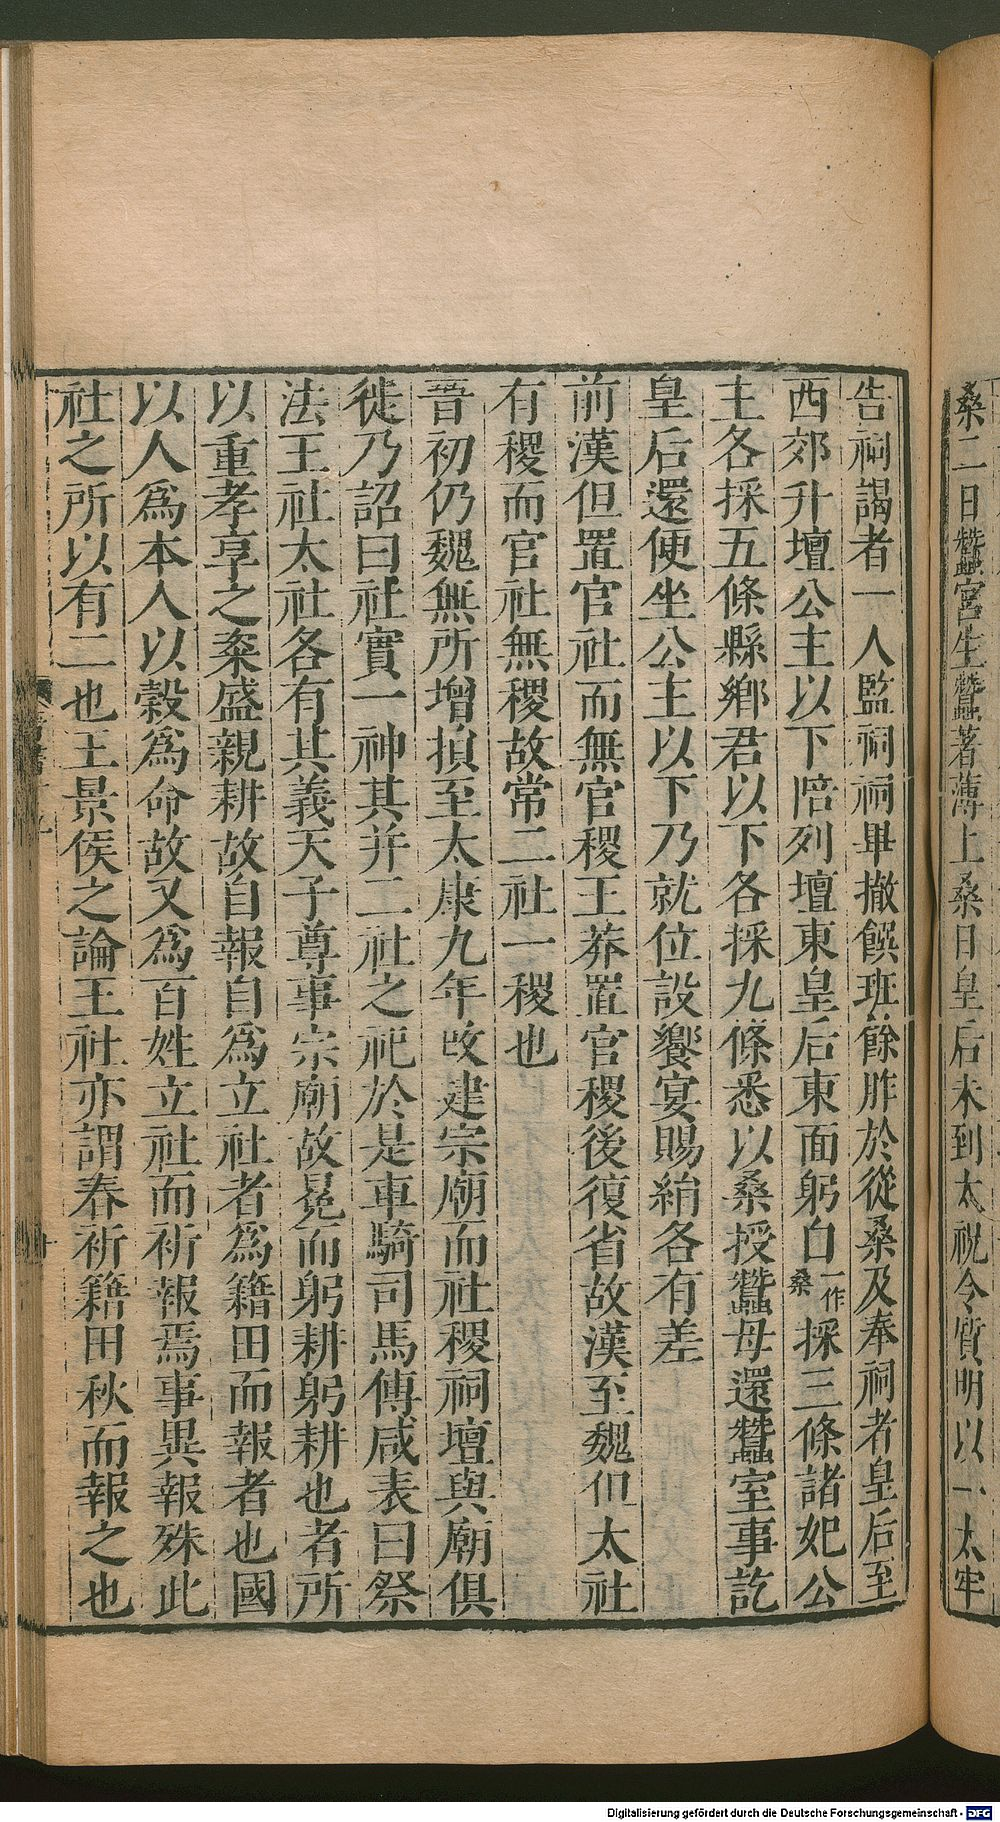 桑二日蠶宮生蠶著薄上桑日皇后未到太祝令質明以一太牢
告祠謁者一人監祠祠畢撤饌班餘胙於從桑及奉祠者皇后至
西郊升壇公主以下陪列壇東皇后東面躬白一作桑採三條諸妃公
主各採五條縣鄉君以下各採九條悉以桑授蠶母還蠶室事訖
皇后還便坐公主以下乃就位設饗宴賜絹各有差
前漢但置官社而無官稷王莽置官稷後復省故漢至魏但太社
有稷而官社無稷故常二社一稷也
晉初仍魏無所增損至太康九年改建宗廟而社稷祠壇與廟俱
徙乃詔曰社實一神其并二社之祀於是車騎司馬傅咸表曰祭
法王社太社各有其義天子尊事宗廟故冕而躬耕躬耕也者所
以重孝享之粢盛親耕故自報自為立社者為籍田而報者也國
以人為本人以穀為命故又為百姓立社而祈報焉事異報殊此
社之所以有二也王景侯之論王社亦謂春祈籍田秋而報之也
Digitalisierung gefördert durch die Deutsche Forschungsgemeinschaft - DFG